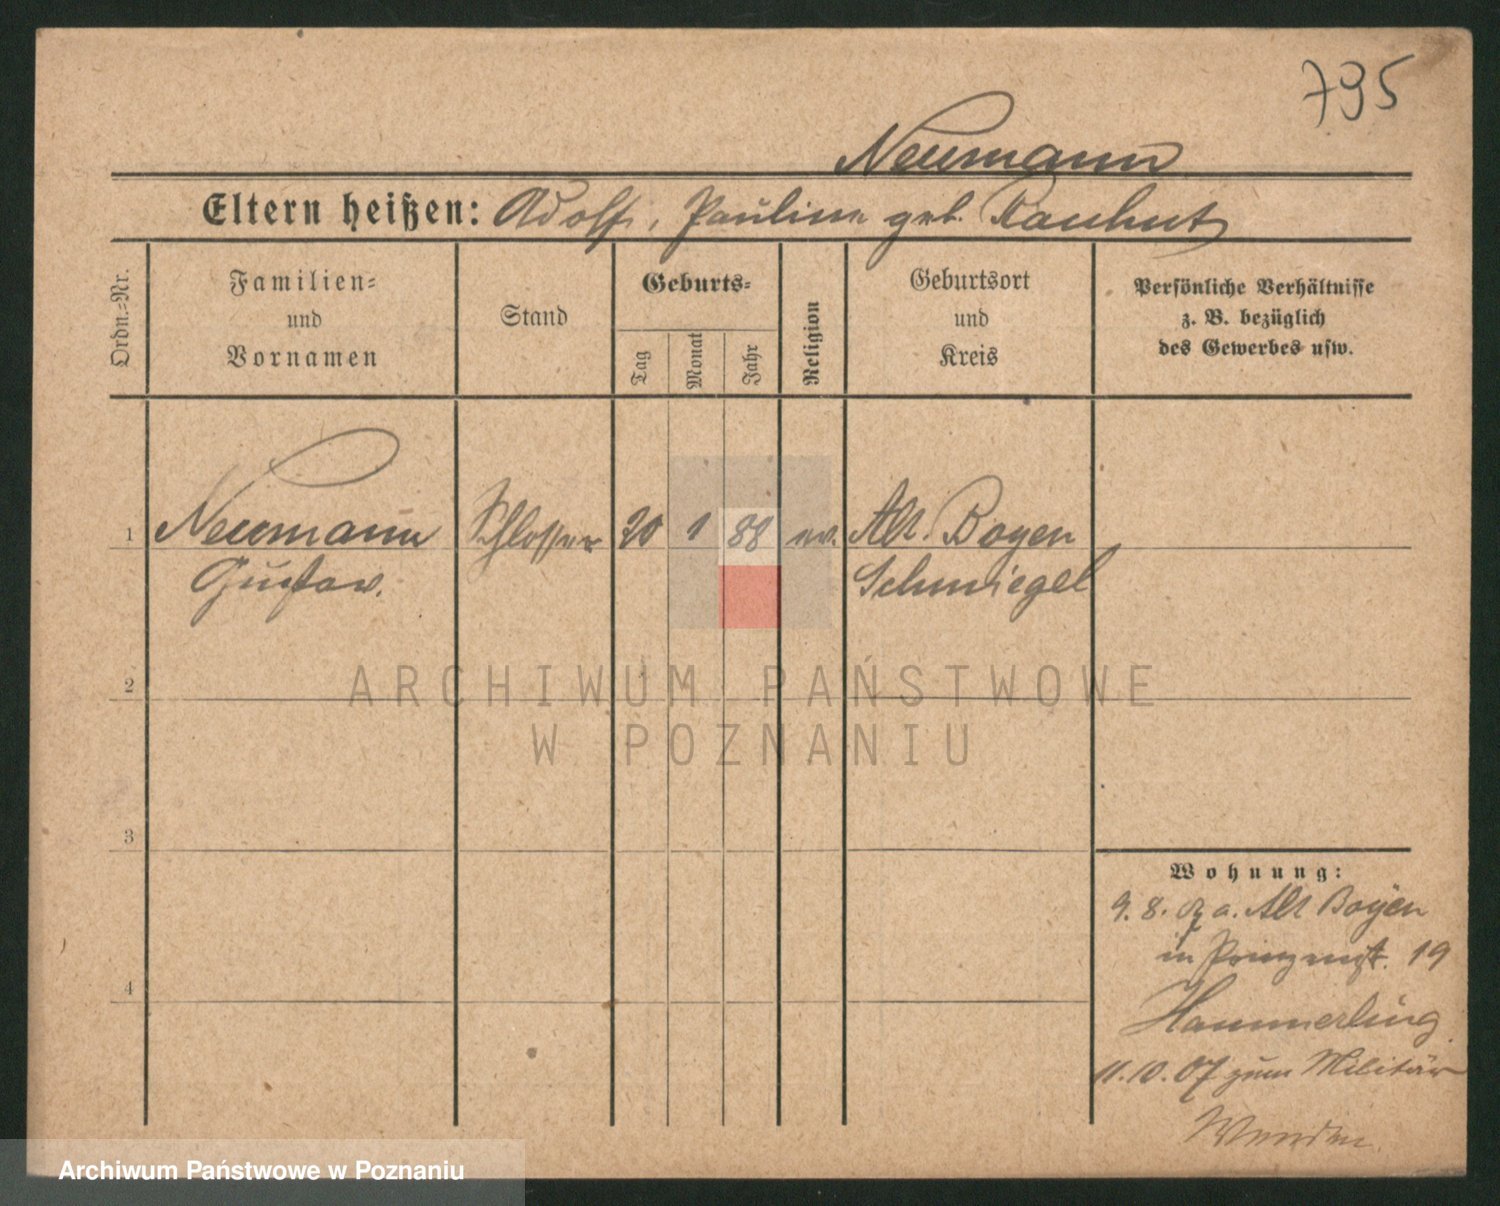 795
Neumann
Eltern heißen: Adolf, Pauline geb. Rauhut
Ordn.-Nr.
Familien-
und
Vornamen
Stand
Geburts-
Tag
Monat
Jahr
Religion
Geburtsort
und
Kreis
Persönliche Verhältnisse
z. B. bezüglich
des Gewerbes usw.
1 Neumann Schlosser 20 1 88 ev. Alt Boyen
Gustav. Schmiegel
2
3
4
Wohnung:
9. 8. 07 a. Alt Boyen
in Prinzenst. 19
Hammerling
11. 10. 07 zum Militär
Wenden
ARCHIWUM PAŃSTWOWE
W POZNANIU
Archiwum Państwowe w Poznaniu